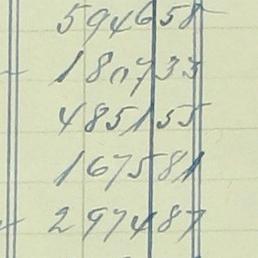 594658
180733
485155
167581
297487